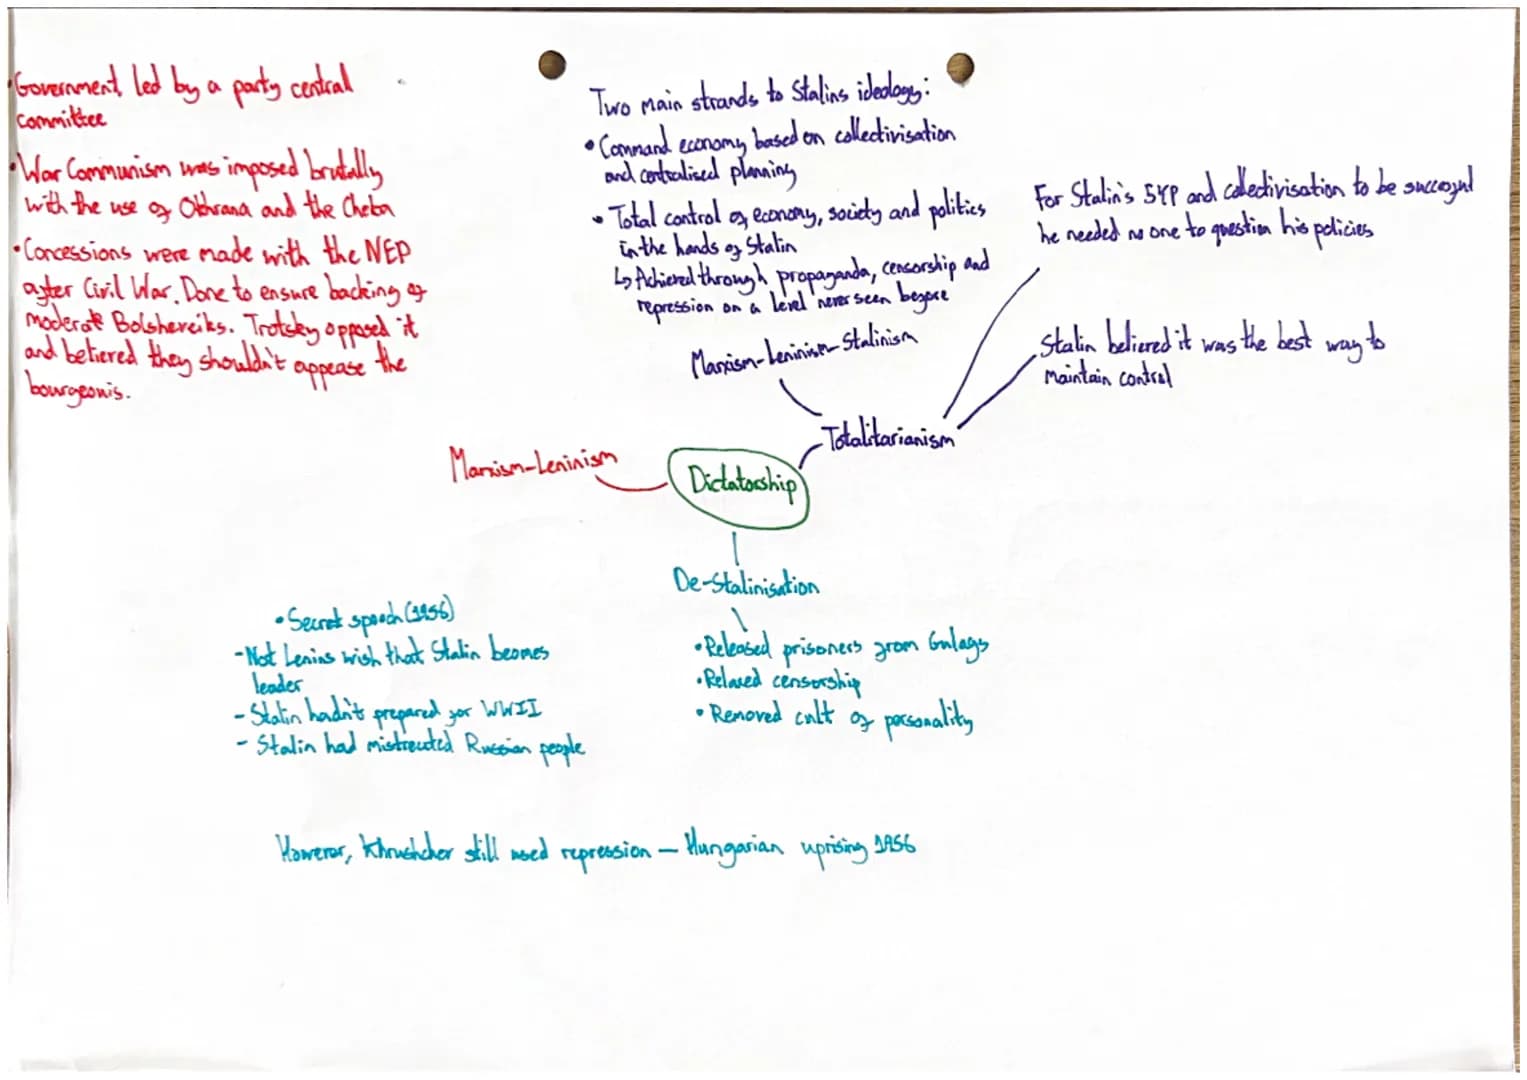 •Government, led by a party central
committee
•War Communism was imposed brutally
with the use of Okhrana and the Cheka
•Concessions were made with the NEP
after Civil War. Done to ensure backing of
moderate Bolsheveiks. Trotsky opposed it
and believed they shouldn't appease the
bourgeonis.
Two main strands to Stalins ideology:
•Command economy based on collectivisation
and centralised planning
•Total control of economy, society and politics
in the hands of Stalin
↳Achieved through propaganda, censorship and
repression on a level never seen before
Marxism-Leninism-Stalinism
For Stalin's 5YP and collectivisation to be successful
he needed no one to question his policies
Stalin believed it was the best way to
maintain control
Totalitarianism
Marxism-Leninism
Dictatorship
De-Stalinisation
•Secret speech (1956)
-Not Lenins wish that Stalin becomes
leader
- Stalin hadn't prepared for WWII
- Stalin had mistreated Russian people
•Released prisoners from Gulags
•Relaxed censorship
•Removed cult of personality
However, Khrushchev still used repression – Hungarian uprising 1956